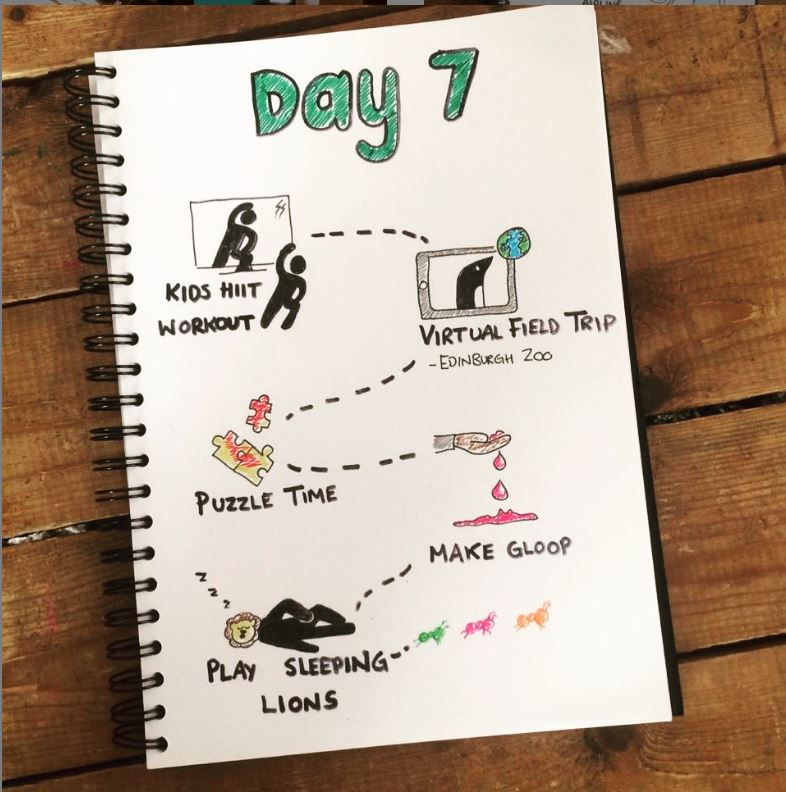 AIRLINE
Day 7
KIDS HIIT
WORKOUT
VIRTUAL FIELD TRIP
- EDINBURGH ZOO
PUZZLE TIME
MAKE GLOOP
z z z z
PLAY SLEEPING
LIONS